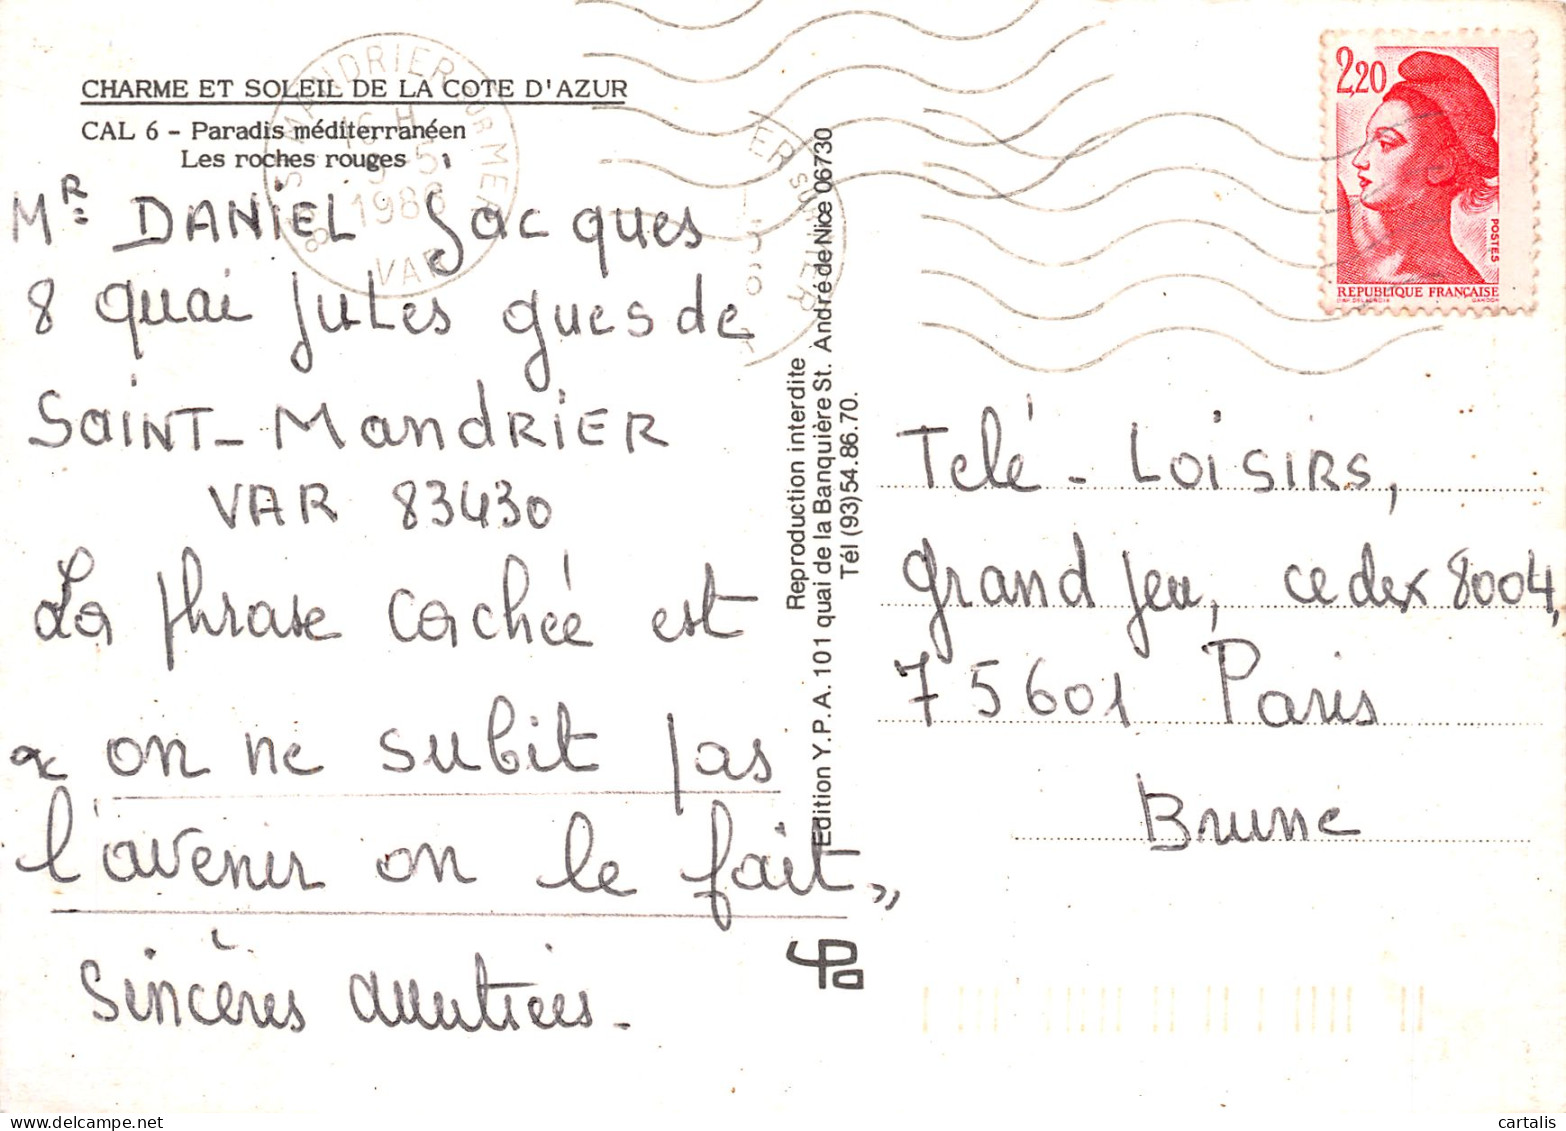 CHARME ET SOLEIL DE LA COTE D'AZUR
CAL 6 - Paradis méditerranéen
Les roches rouges
MR DANIEL Jacques
8 quai Jules guesde
SAINT-MANDRIER
VAR 83430
La phrase cachée est
" on ne subit pas
l'avenir on le fait "
Sincères
Reproduction interdite
Edition Y.P.A. 101 quai de la Banquière St. André de Nice 06730
Tél (93)54.86.70.
ypa
MANDRIER SUR MER
16 H
9-5
1986
VAR
83
ER SUR MER
2,20
POSTES
REPUBLIQUE FRANÇAISE
DAP. DELACROIX GANDON
Télé-LOISIRS,
grand jeu, cedex 8004,
75601 Paris
Brune
cartalis